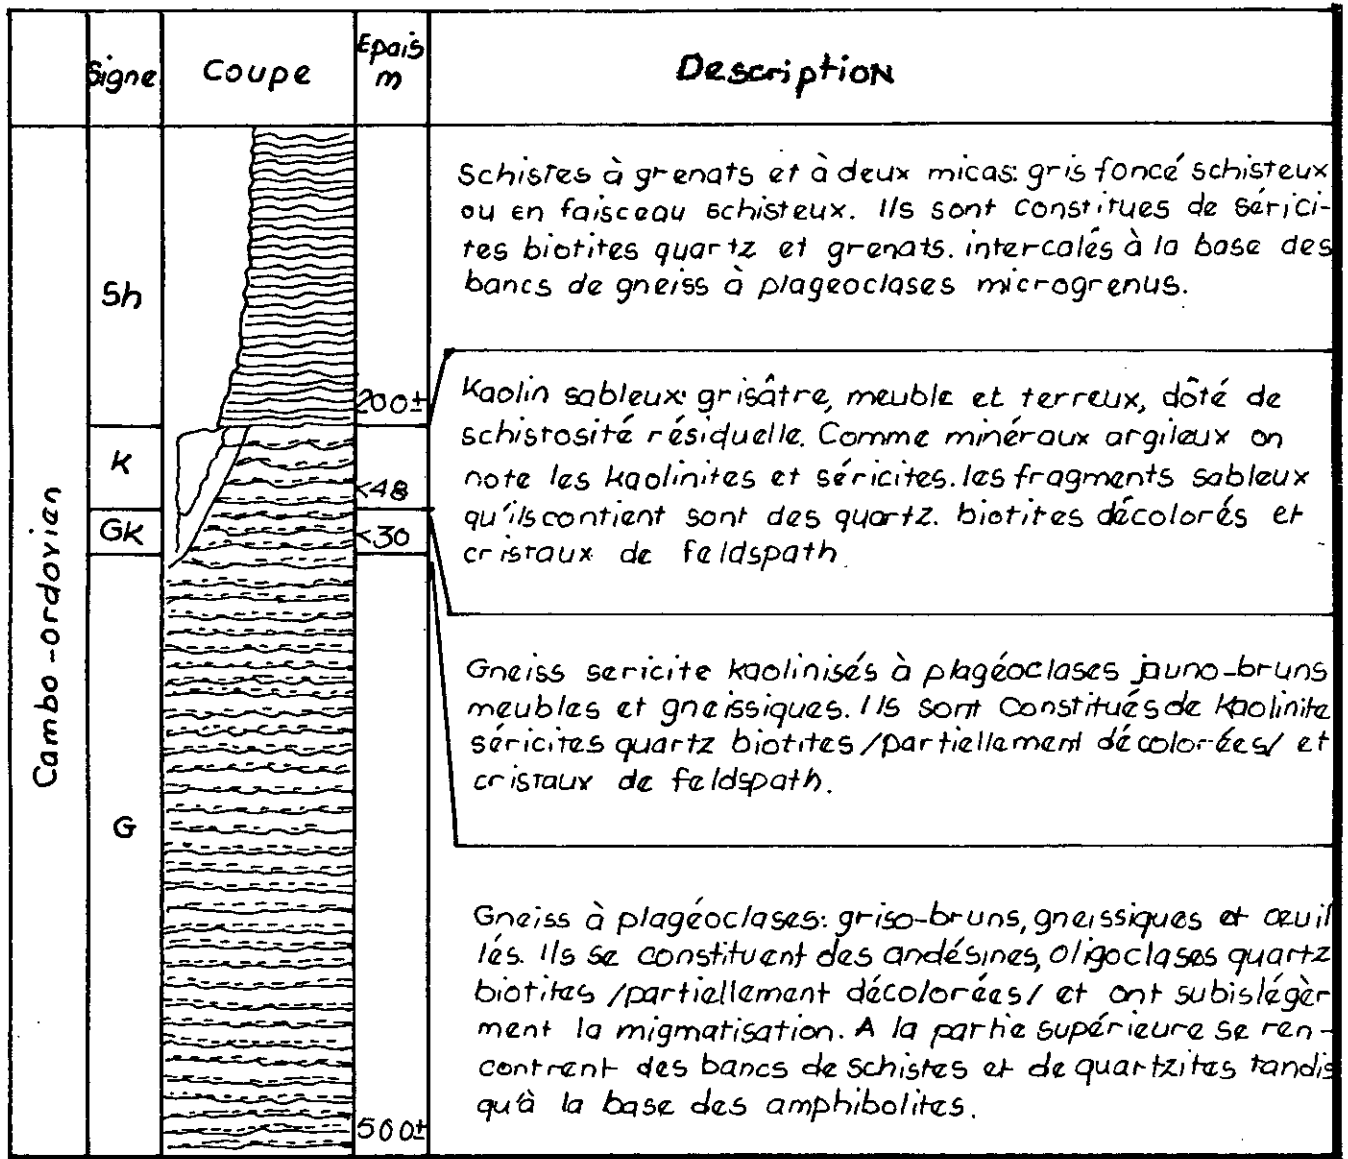 Signe
Coupe
Epais
m
Description
Cambo-ordovien
Sh
200±
Schistes à grenats et à deux micas: gris foncé schisteux
ou en faisceau schisteux. Ils sont constitues de sérici-
tes biotites quartz et grenats. intercalés à la base des
bancs de gneiss à plageoclases microgrenus.
K
<48
Kaolin sableux: grisâtre, meuble et terreux, dôté de
schistosité résiduelle. Comme minéraux argileux on
note les kaolinites et séricites. les fragments sableux
qu'ils contient sont des quartz. biotites décolorés et
cristaux de feldspath.
GK
<30
Gneiss sericite kaolinisés à plagéoclases jauno-bruns
meubles et gneissiques. Ils sont constitués de kaolinite
séricites quartz biotites /partiellement décolorées/ et
cristaux de feldspath.
G
500±
Gneiss à plagéoclases: griso-bruns, gneissiques et œuil
lés. Ils se constituent des andésines, oligoclases quartz
biotites /partiellement décolorées/ et ont subis légèr
ment la migmatisation. A la partie supérieure se ren-
contrent des bancs de schistes et de quartzites tandis
qu'à la base des amphibolites.